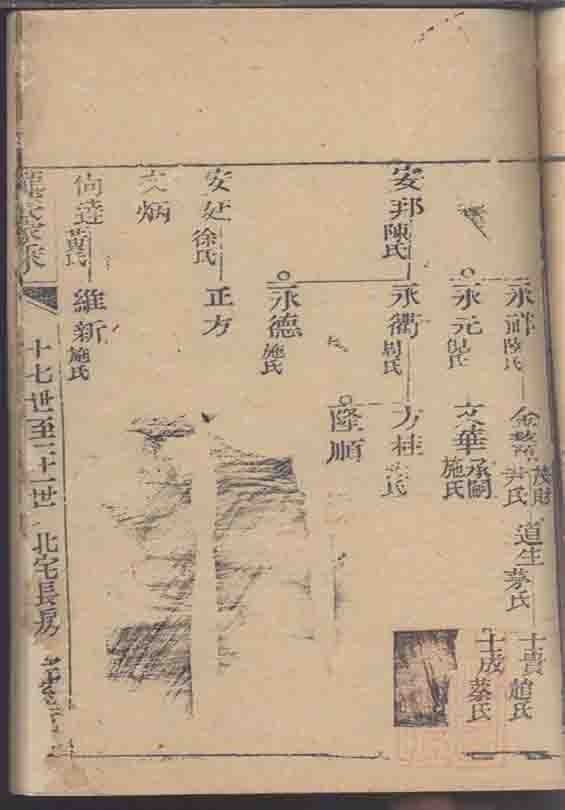 永祥
陳氏
茂財
尹氏
道生
茅氏
士貴
趙氏
士成
蔡氏
永元
倪氏
文華
承嗣
施氏
安邦
陳氏
永衢
周氏
方桂
隆順
永德
施氏
安廷
徐氏
正方
文炳
尚達
黃氏
維新
施氏
十七世至二十一世
北宅長房